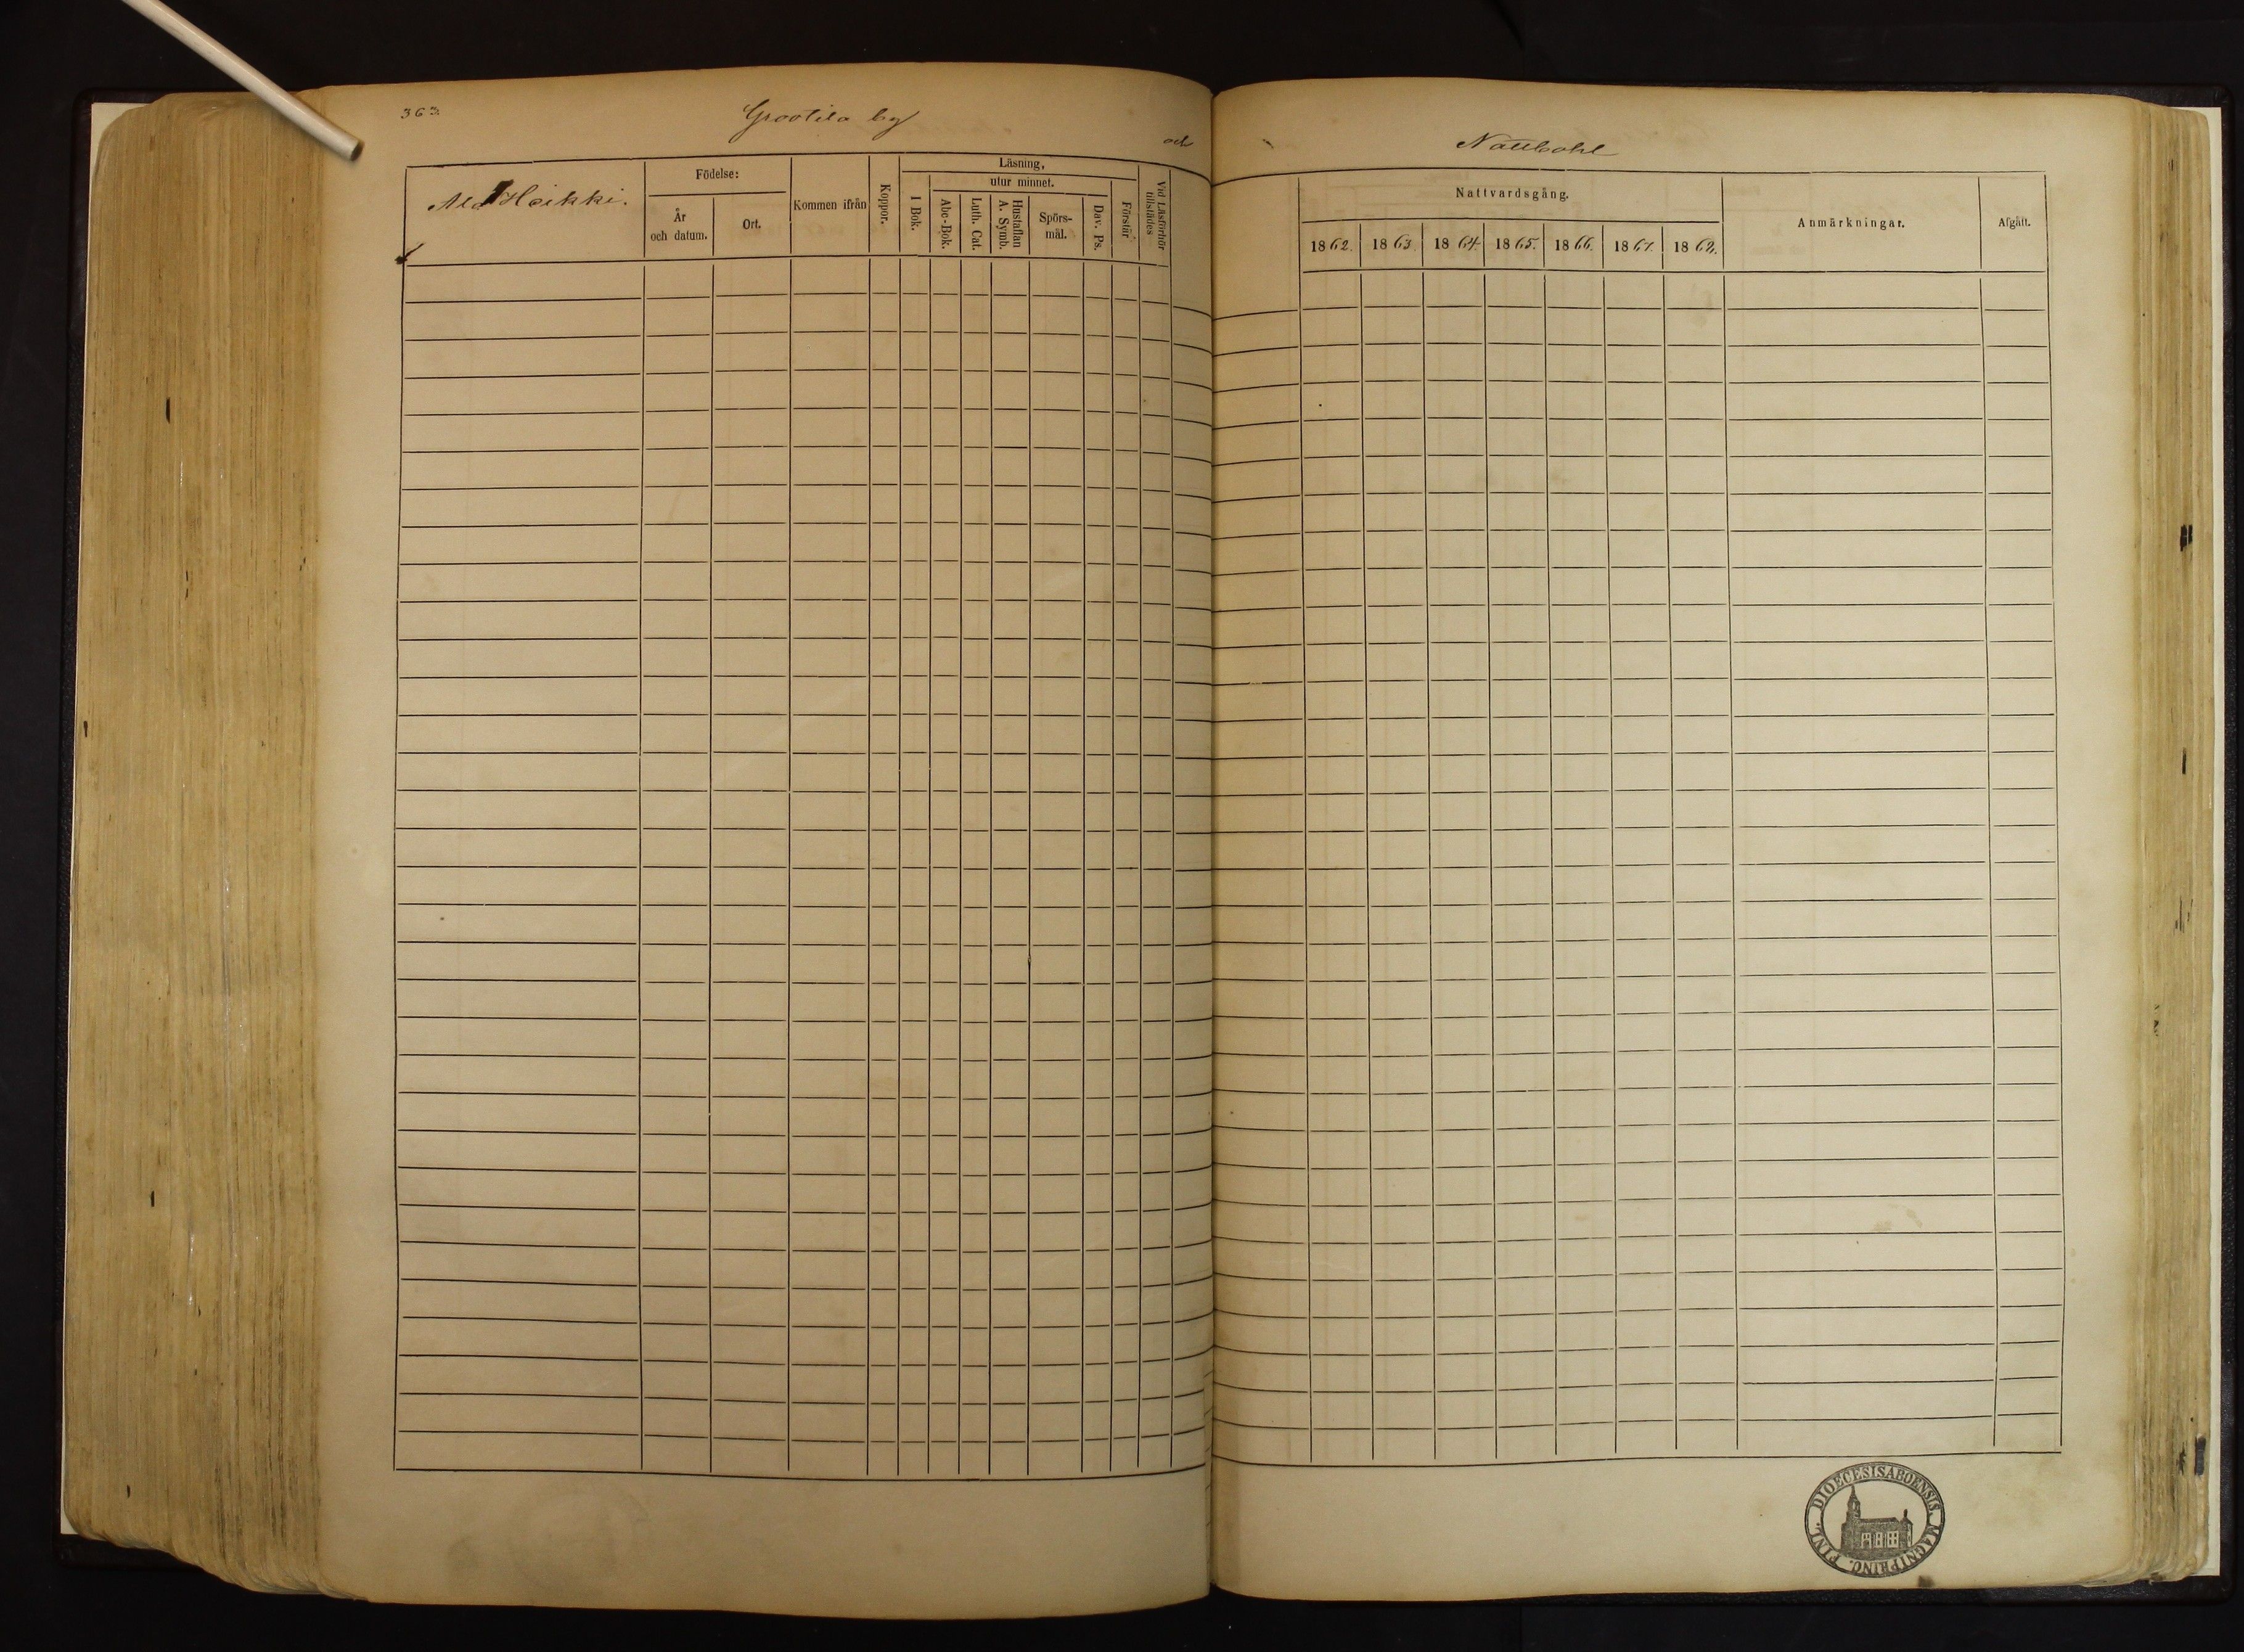 363.
Grootila by
och
Nattbohl
Ala Heikki.
Födelse:
År
och datum.
Ort.
Kommen ifrån
Koppor.
Läsning,
utur minnet.
I Bok.
Abc-Bok.
Luth. Cat.
Hustaflan
A. Symb.
Spörs-
mål.
Dav. Ps.
Förstår
Vid Läsförhör
tillstädes
Nattvardsgång.
1862. 1863. 1864. 1865. 1866. 1867. 1868.
Anmärkningar.
Afgått.
DIOECESIS ABOENSIS. MAGNI PRINC. FINL.